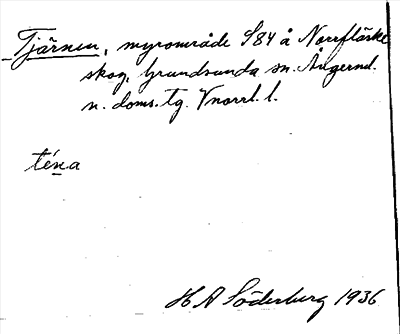 Tjärnen, myrområde S84 å Norrflärke
skog, Grundsunda sn. Ångerml.
n. doms. tg. Vnorrl. l.
téna
H A Söderberg 1936